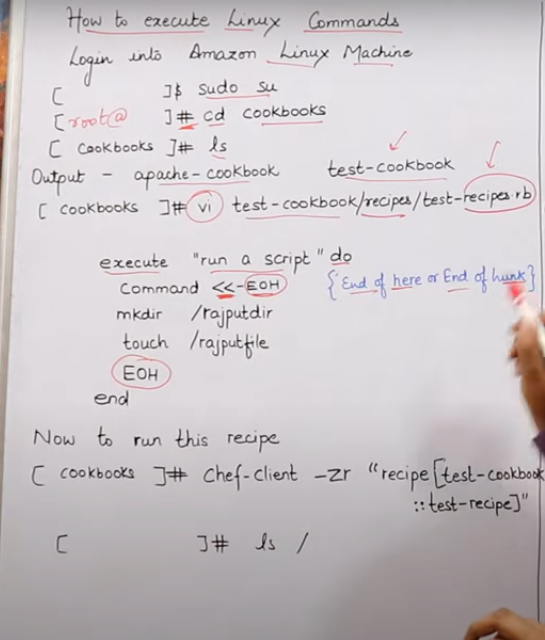 How to execute Linux Commands
Login into Amazon Linux Machine
[ ]$ sudo su
[root@ ]# cd cookbooks
[ cookbooks ]# ls
Output - apache-cookbook test-cookbook
[ cookbooks ]# vi test-cookbook/recipes/test-recipes.rb
execute "run a script" do
command <<-EOH {End of here or End of hunk}
mkdir /rajputdir
touch /rajputfile
EOH
end
Now to run this recipe
[ cookbooks ]# Chef-client -zr "recipe[test-cookbook
::test-recipe]"
[ ]# ls /